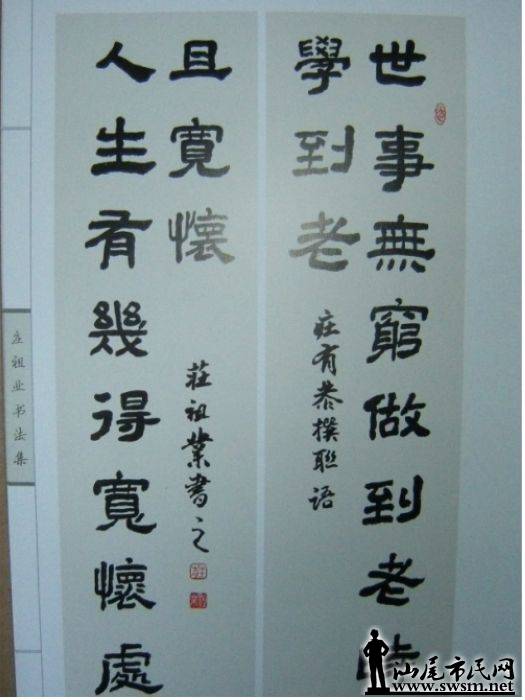 世事無窮做到老時
學到老
庄有恭撰聯语
人生有幾得寬懷處
且寬懷
莊祖業書之
庄祖业书法集
汕尾市民网
www.swsm.net